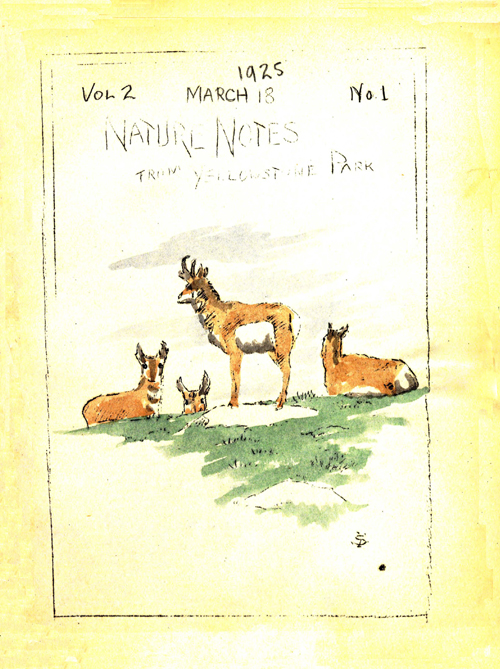 1925
VOL 2 MARCH 18 No. 1
NATURE NOTES
FROM YELLOWSTONE PARK